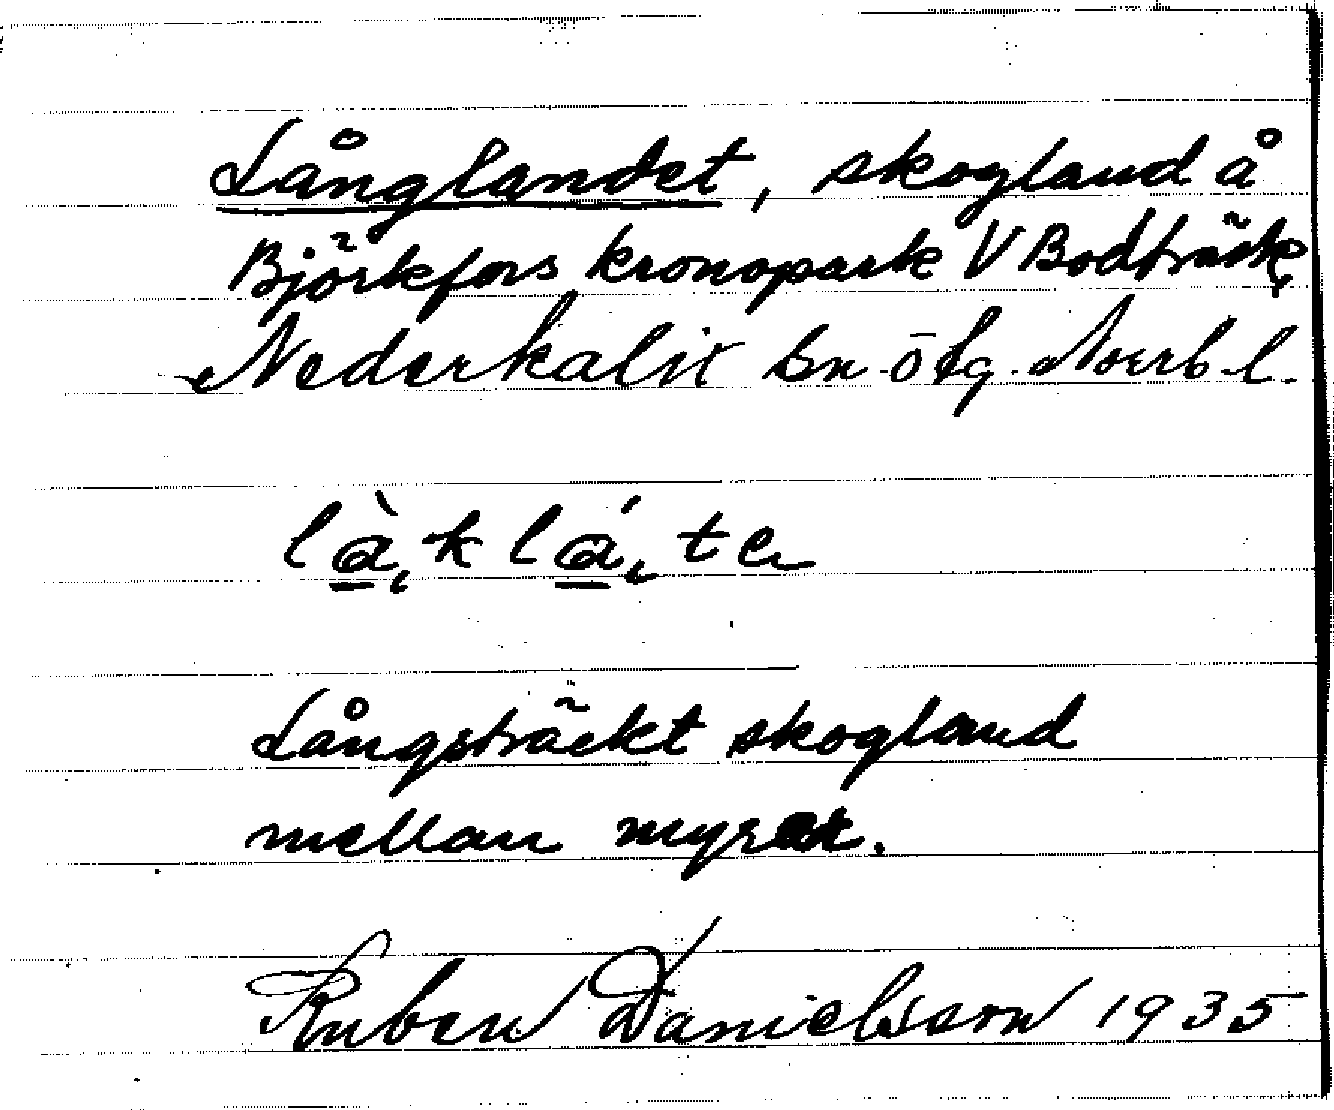 Långlandet, skogland å
Björkfors kronopark V Bodträsk,
Nederkalix sn ö tg. Norrb. l.
là̱ˌk lá̱ˌ te
Långsträckt skogland
mellan myrar.
Ruben Danielsson 1935